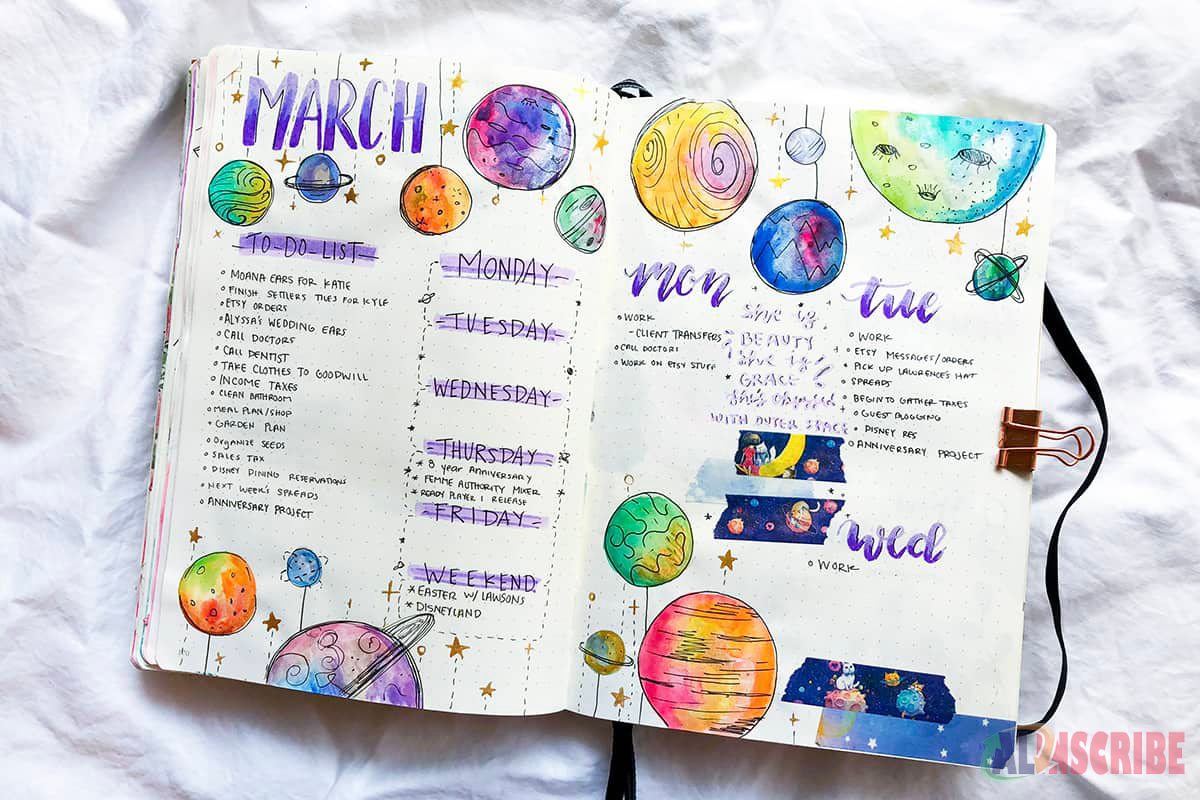 MARCH
-TO-DO-LIST-
MOANA EARS FOR KATIE
FINISH SETTLERS TILES FOR KYLE
ETSY ORDERS
ALYSSA'S WEDDING EARS
CALL DOCTORS
CALL DENTIST
TAKE CLOTHES TO GOODWILL
INCOME TAXES
CLEAN BATHROOM
MEAL PLAN/SHOP
GARDEN PLAN
ORGANIZE SEEDS
SALES TAX
DISNEY DINING RESERVATIONS
NEXT WEEK'S SPREADS
ANNIVERSARY PROJECT
-MONDAY-
-TUESDAY-
-WEDNESDAY-
-THURSDAY-
* 8 YEAR ANNIVERSARY
* FEMME AUTHORITY MIXER
* READY PLAYER 1 RELEASE
-FRIDAY-
-WEEKEND-
* EASTER W/ LAWSONS
* DISNEYLAND
mon
WORK
- CLIENT TRANSFERS
CALL DOCTOR!
WORK ON ETSY STUFF
She is
BEAUTY
She is
GRACE
She's obsessed
WITH OUTER SPACE
tue
WORK
ETSY MESSAGES/ORDERS
PICK UP LAWRENCE'S HAT
SPREADS
BEGIN TO GATHER TAXES
GUEST BLOGGING
DISNEY RES
ANNIVERSARY PROJECT
wed
WORK